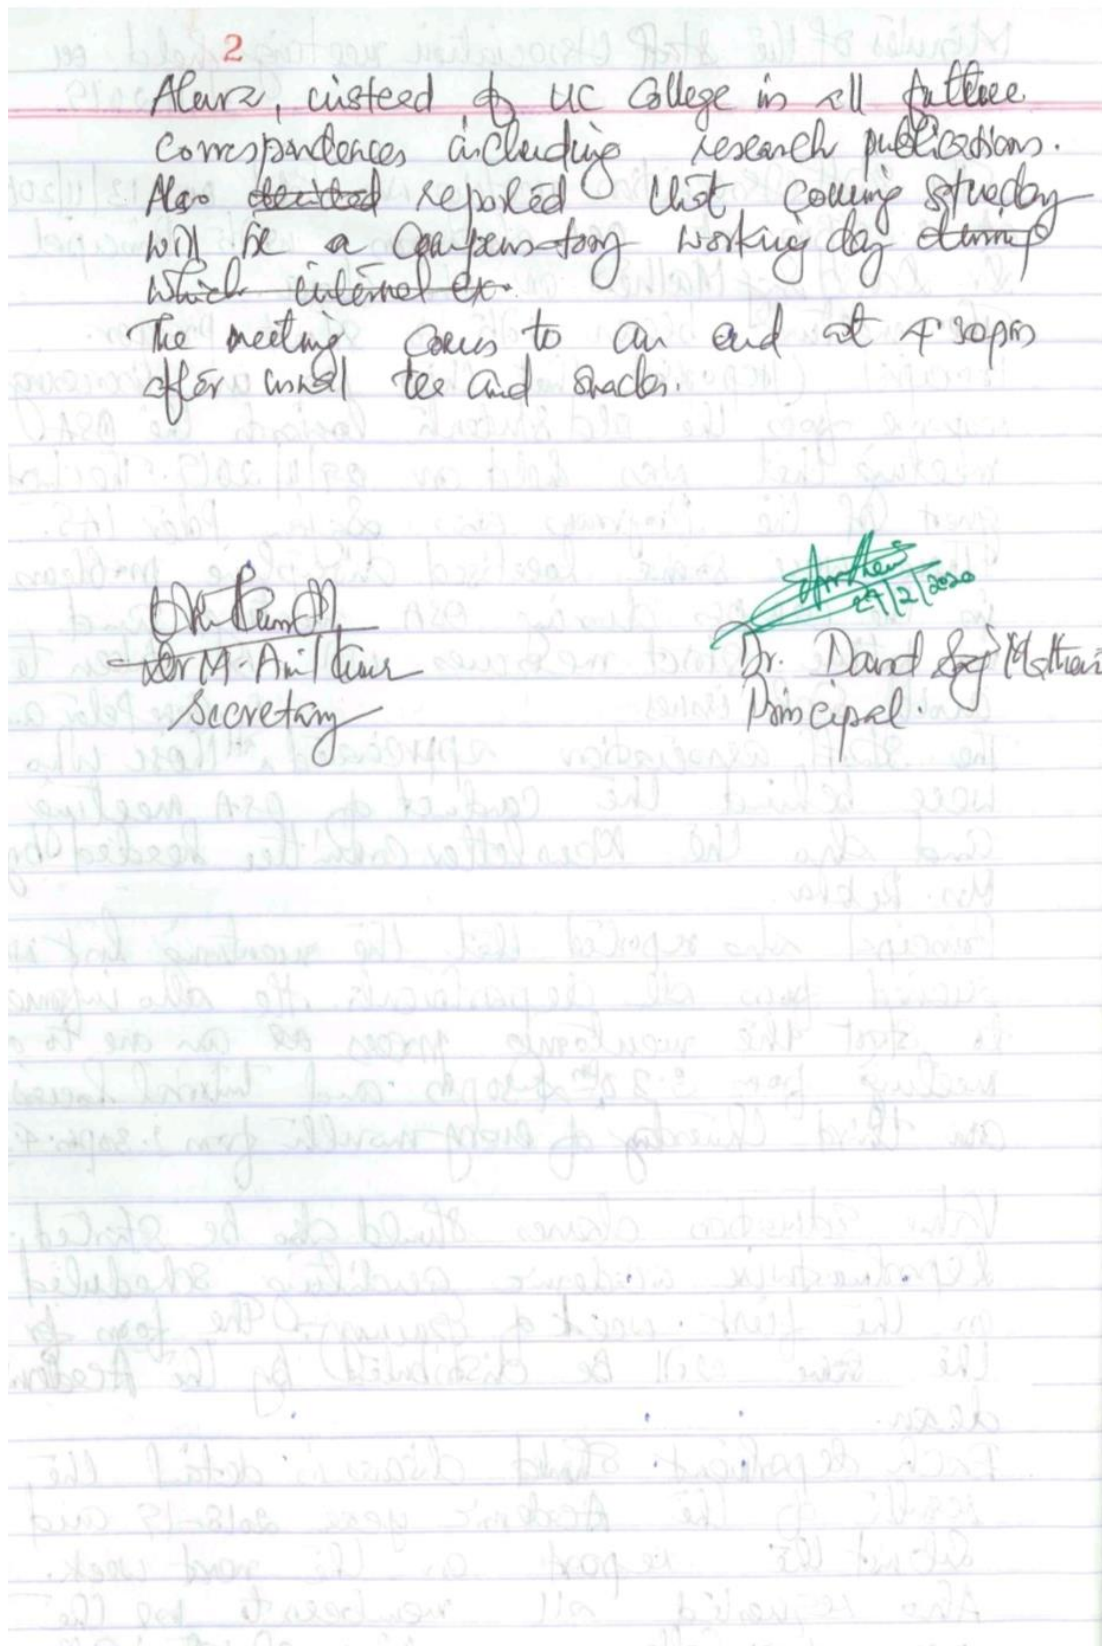 2
insteed of UC College in all future
correspondences including research publications.
Also decided reported that coming saturday
will be a compensatory working day during
which internal ex.
The meeting comes to an end at 4 30pm
after usual tea and snacks.
27/2/2020
Dr M. Anil Kumar
Secretary
Dr. David Saj Mathew
Principal.